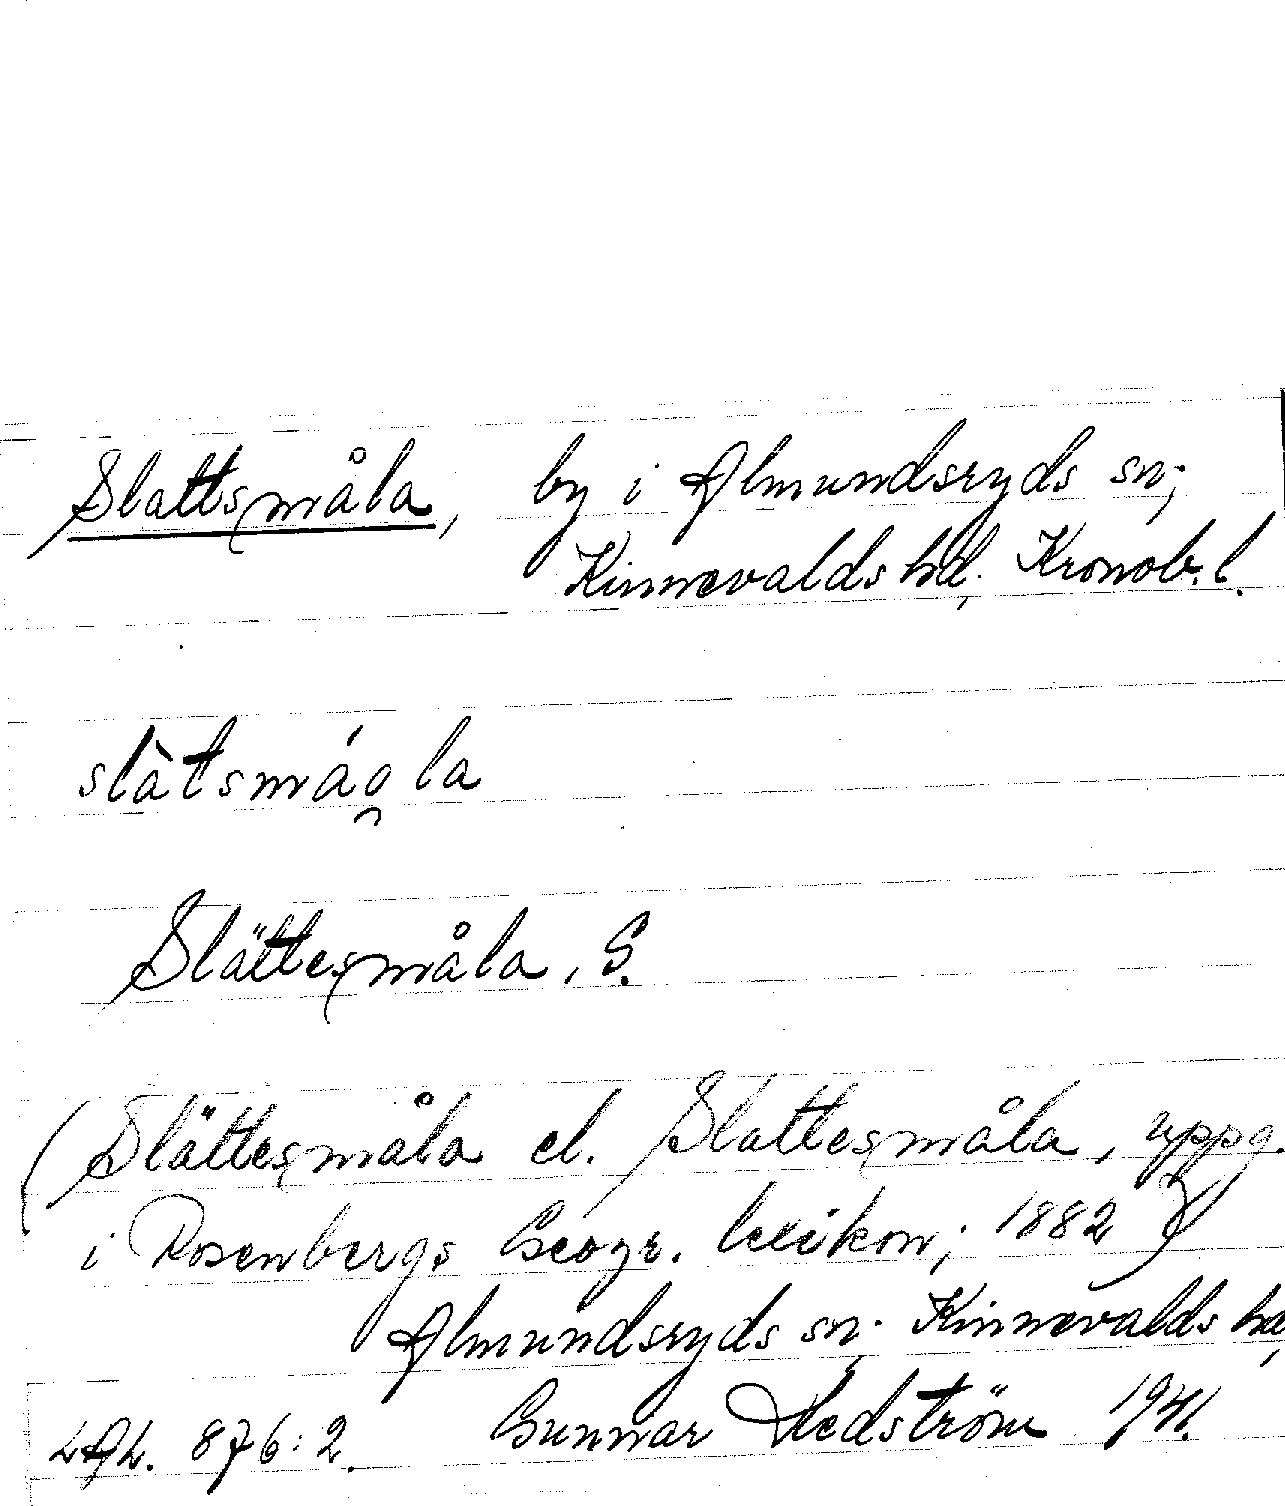 Slattsmåla, by i Almundsryds sn;
Kinnevalds hd. Kronob. l.
slàtsmáo̯la
Slättesmåla, G.
(Slättesmåla el. Slattesmåla, uppg.
i Rosenbergs Geogr. lexikon; 1882)
Almundsryds sn. Kinnevalds hd,
LAL. 876:2. Gunnar Hedström 1941.